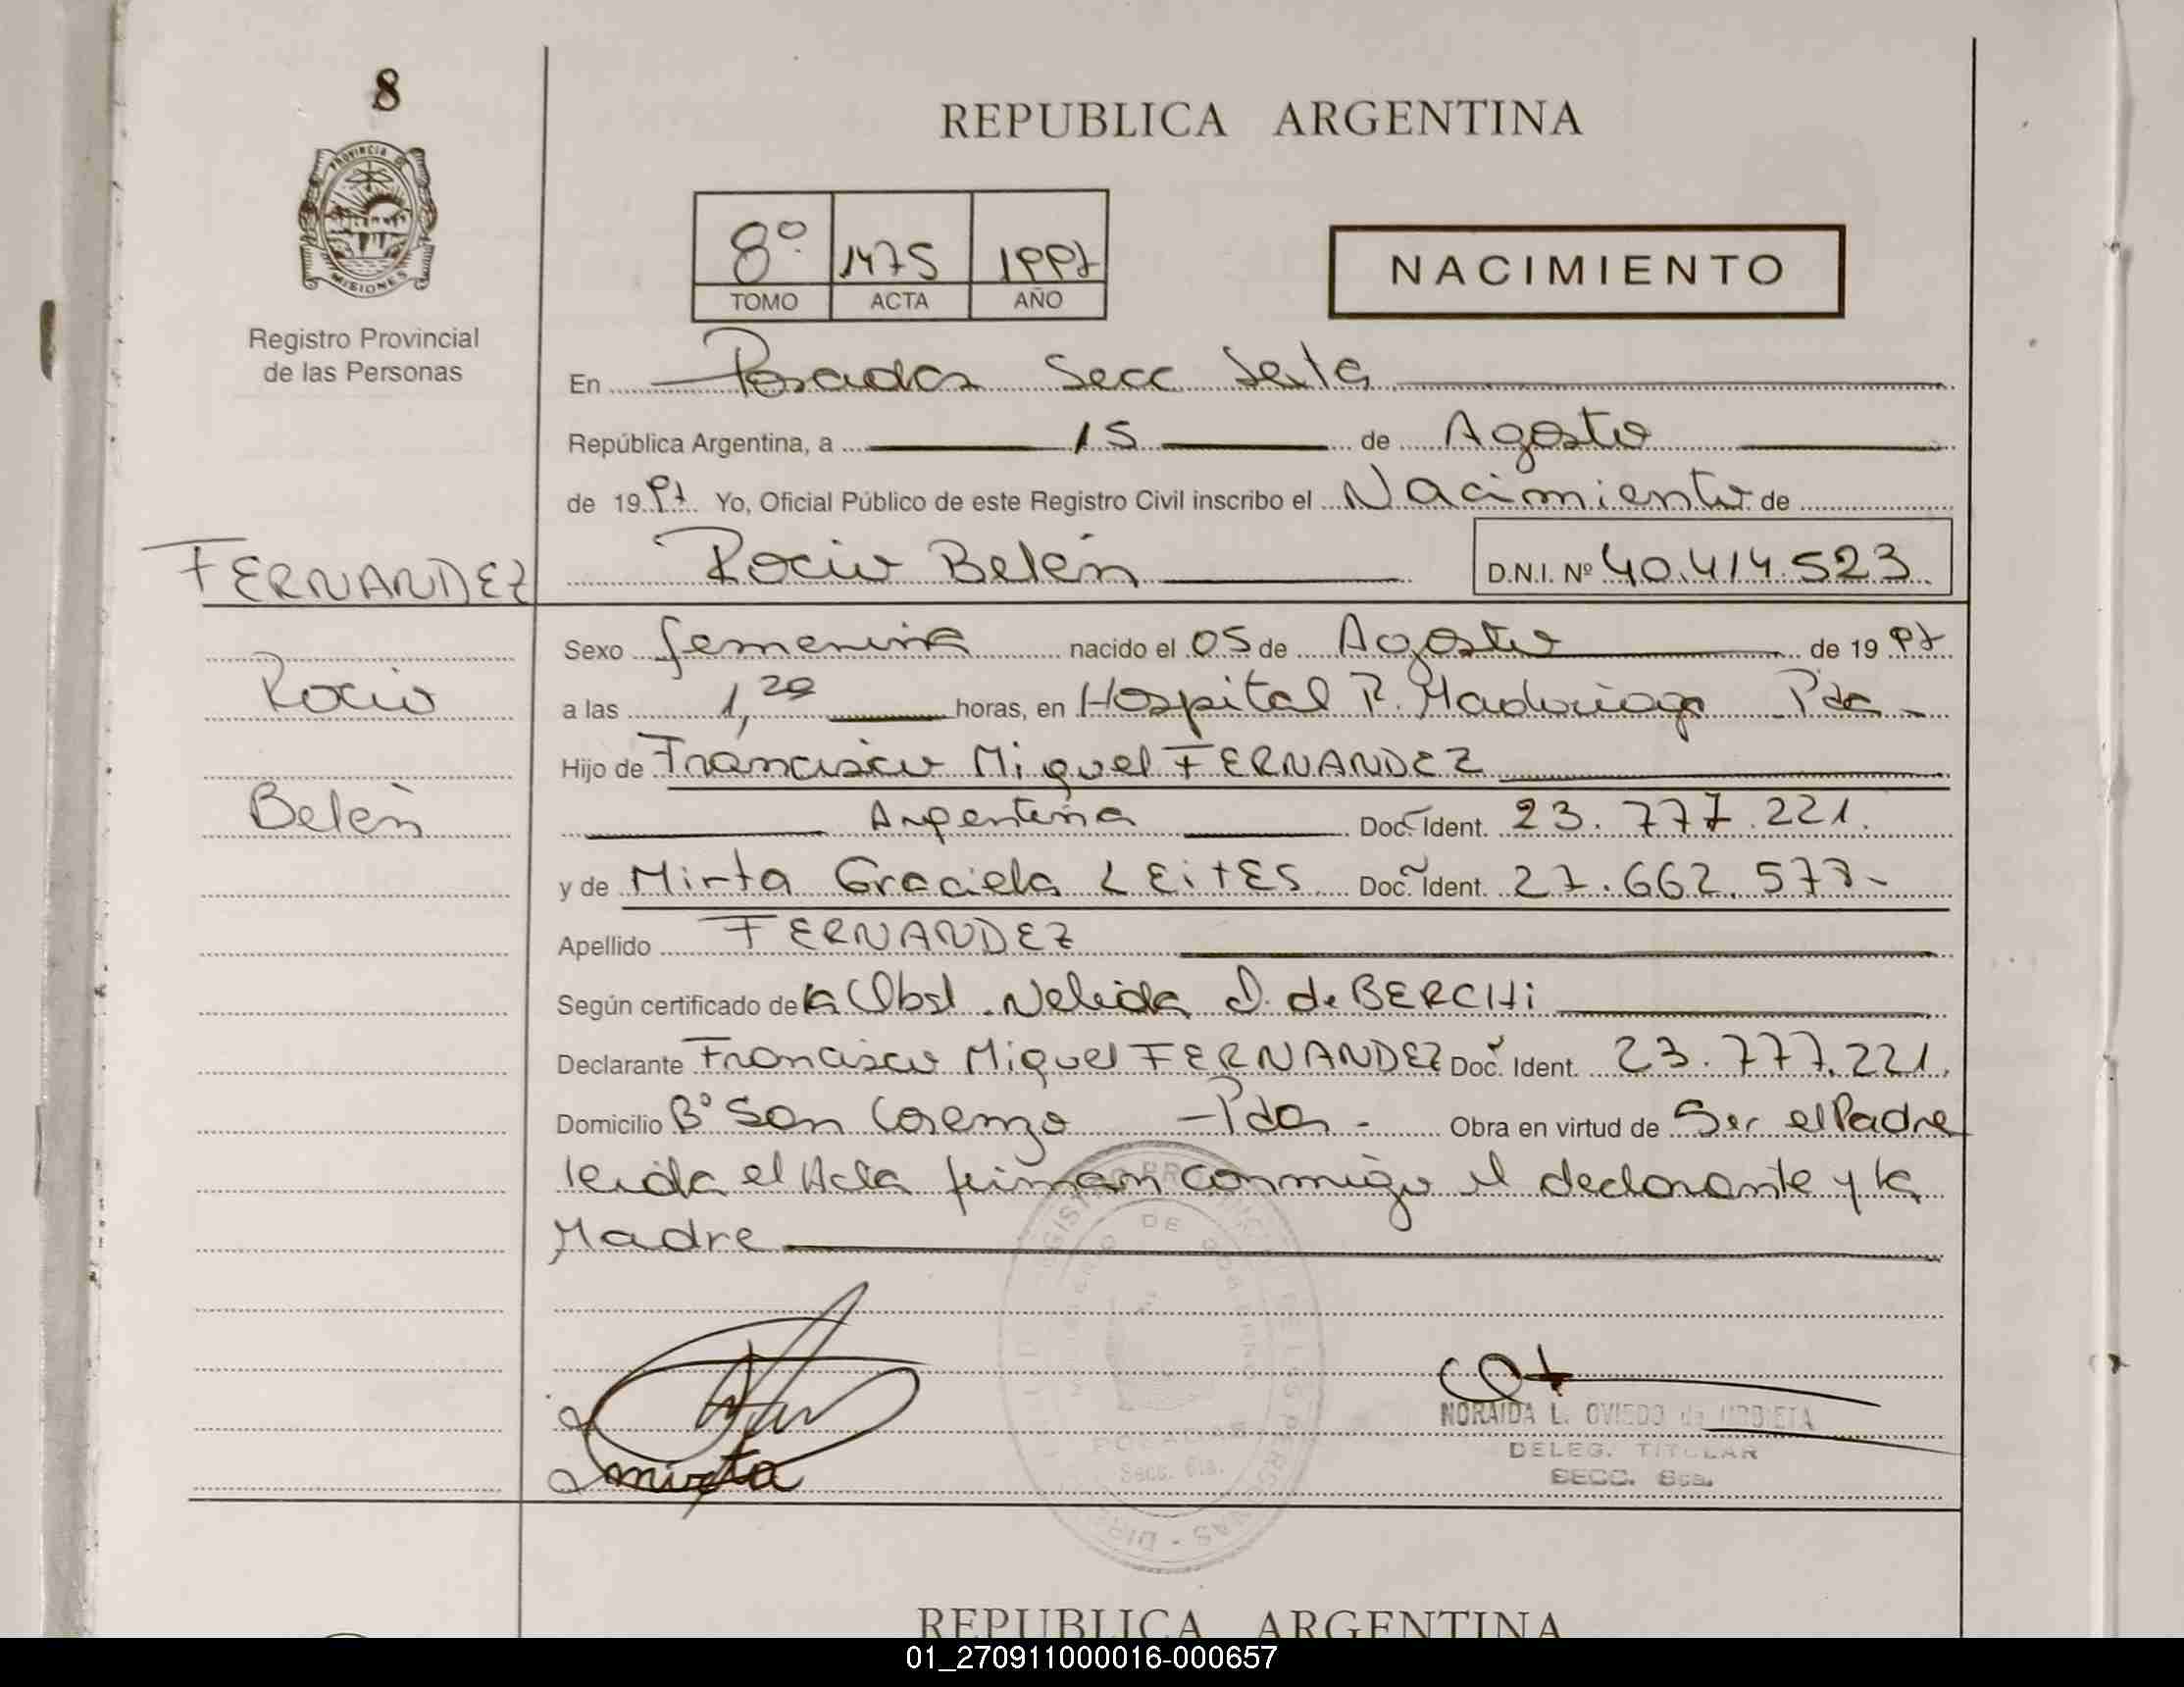 8
PROVINCIA DE
MISIONES
Registro Provincial
de las Personas
REPUBLICA ARGENTINA
8º 1475 1997
TOMO ACTA AÑO
NACIMIENTO
En Posadas Secc Sexta
República Argentina, a 15 de Agosto
de 1997 Yo, Oficial Público de este Registro Civil inscribo el Nacimiento de
FERNANDEZ Rocio Belén D.N.I. Nº 40.414.523
Sexo femenino nacido el 05 de Agosto de 1997
Rocio
a las 1,20 horas, en Hospital R. Madariaga Pdas -
Hijo de Francisco Miguel FERNANDEZ
Belén
Argentina Doc. Ident. 23.777.221.
y de Mirta Graciela LEiTES Doc. Ident. 27.662.577-
Apellido FERNANDEZ
Según certificado de la Obst. Nelida D. de BERCHi
Declarante Francisco Miguel FERNANDEZ Doc. Ident. 23.777.221.
Domicilio Bº San Lorenzo - Pdas - Obra en virtud de Ser el Padre
leida el Acta firman conmigo el declarante y la
Madre
mirta
NORAIDA L. OVIEDO de URBIETA
DELEG. TITULAR
SECC. 6ta.
POSADAS
Secc. 6ta.
REPUBLICA ARGENTINA
01_270911000016-000657